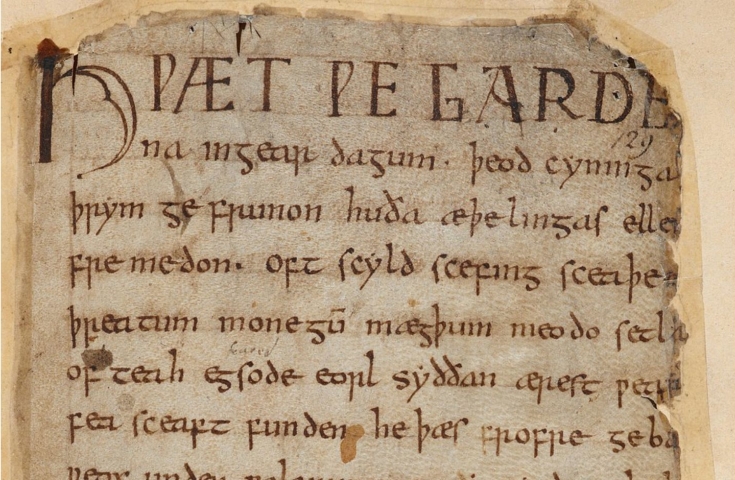 HǷÆT ǷE GARDE
na ingear dagum. þeod cyninga
þrym ge frunon huða æþelingas elle
fremedon. oft scyld scefing sceaþe
þreatum monegū mægþum meodo setla
of teah egsode eorl syððan ærest ƿear
fea sceaft funden heþæs frofre geba
129